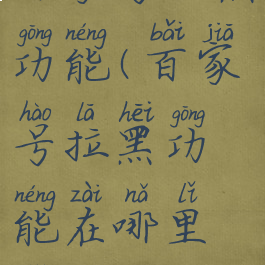 gōng néng bǎi jiā
功能(百家
hào lā hēi gōng
号拉黑功
néng zài nǎ lǐ
能在哪里